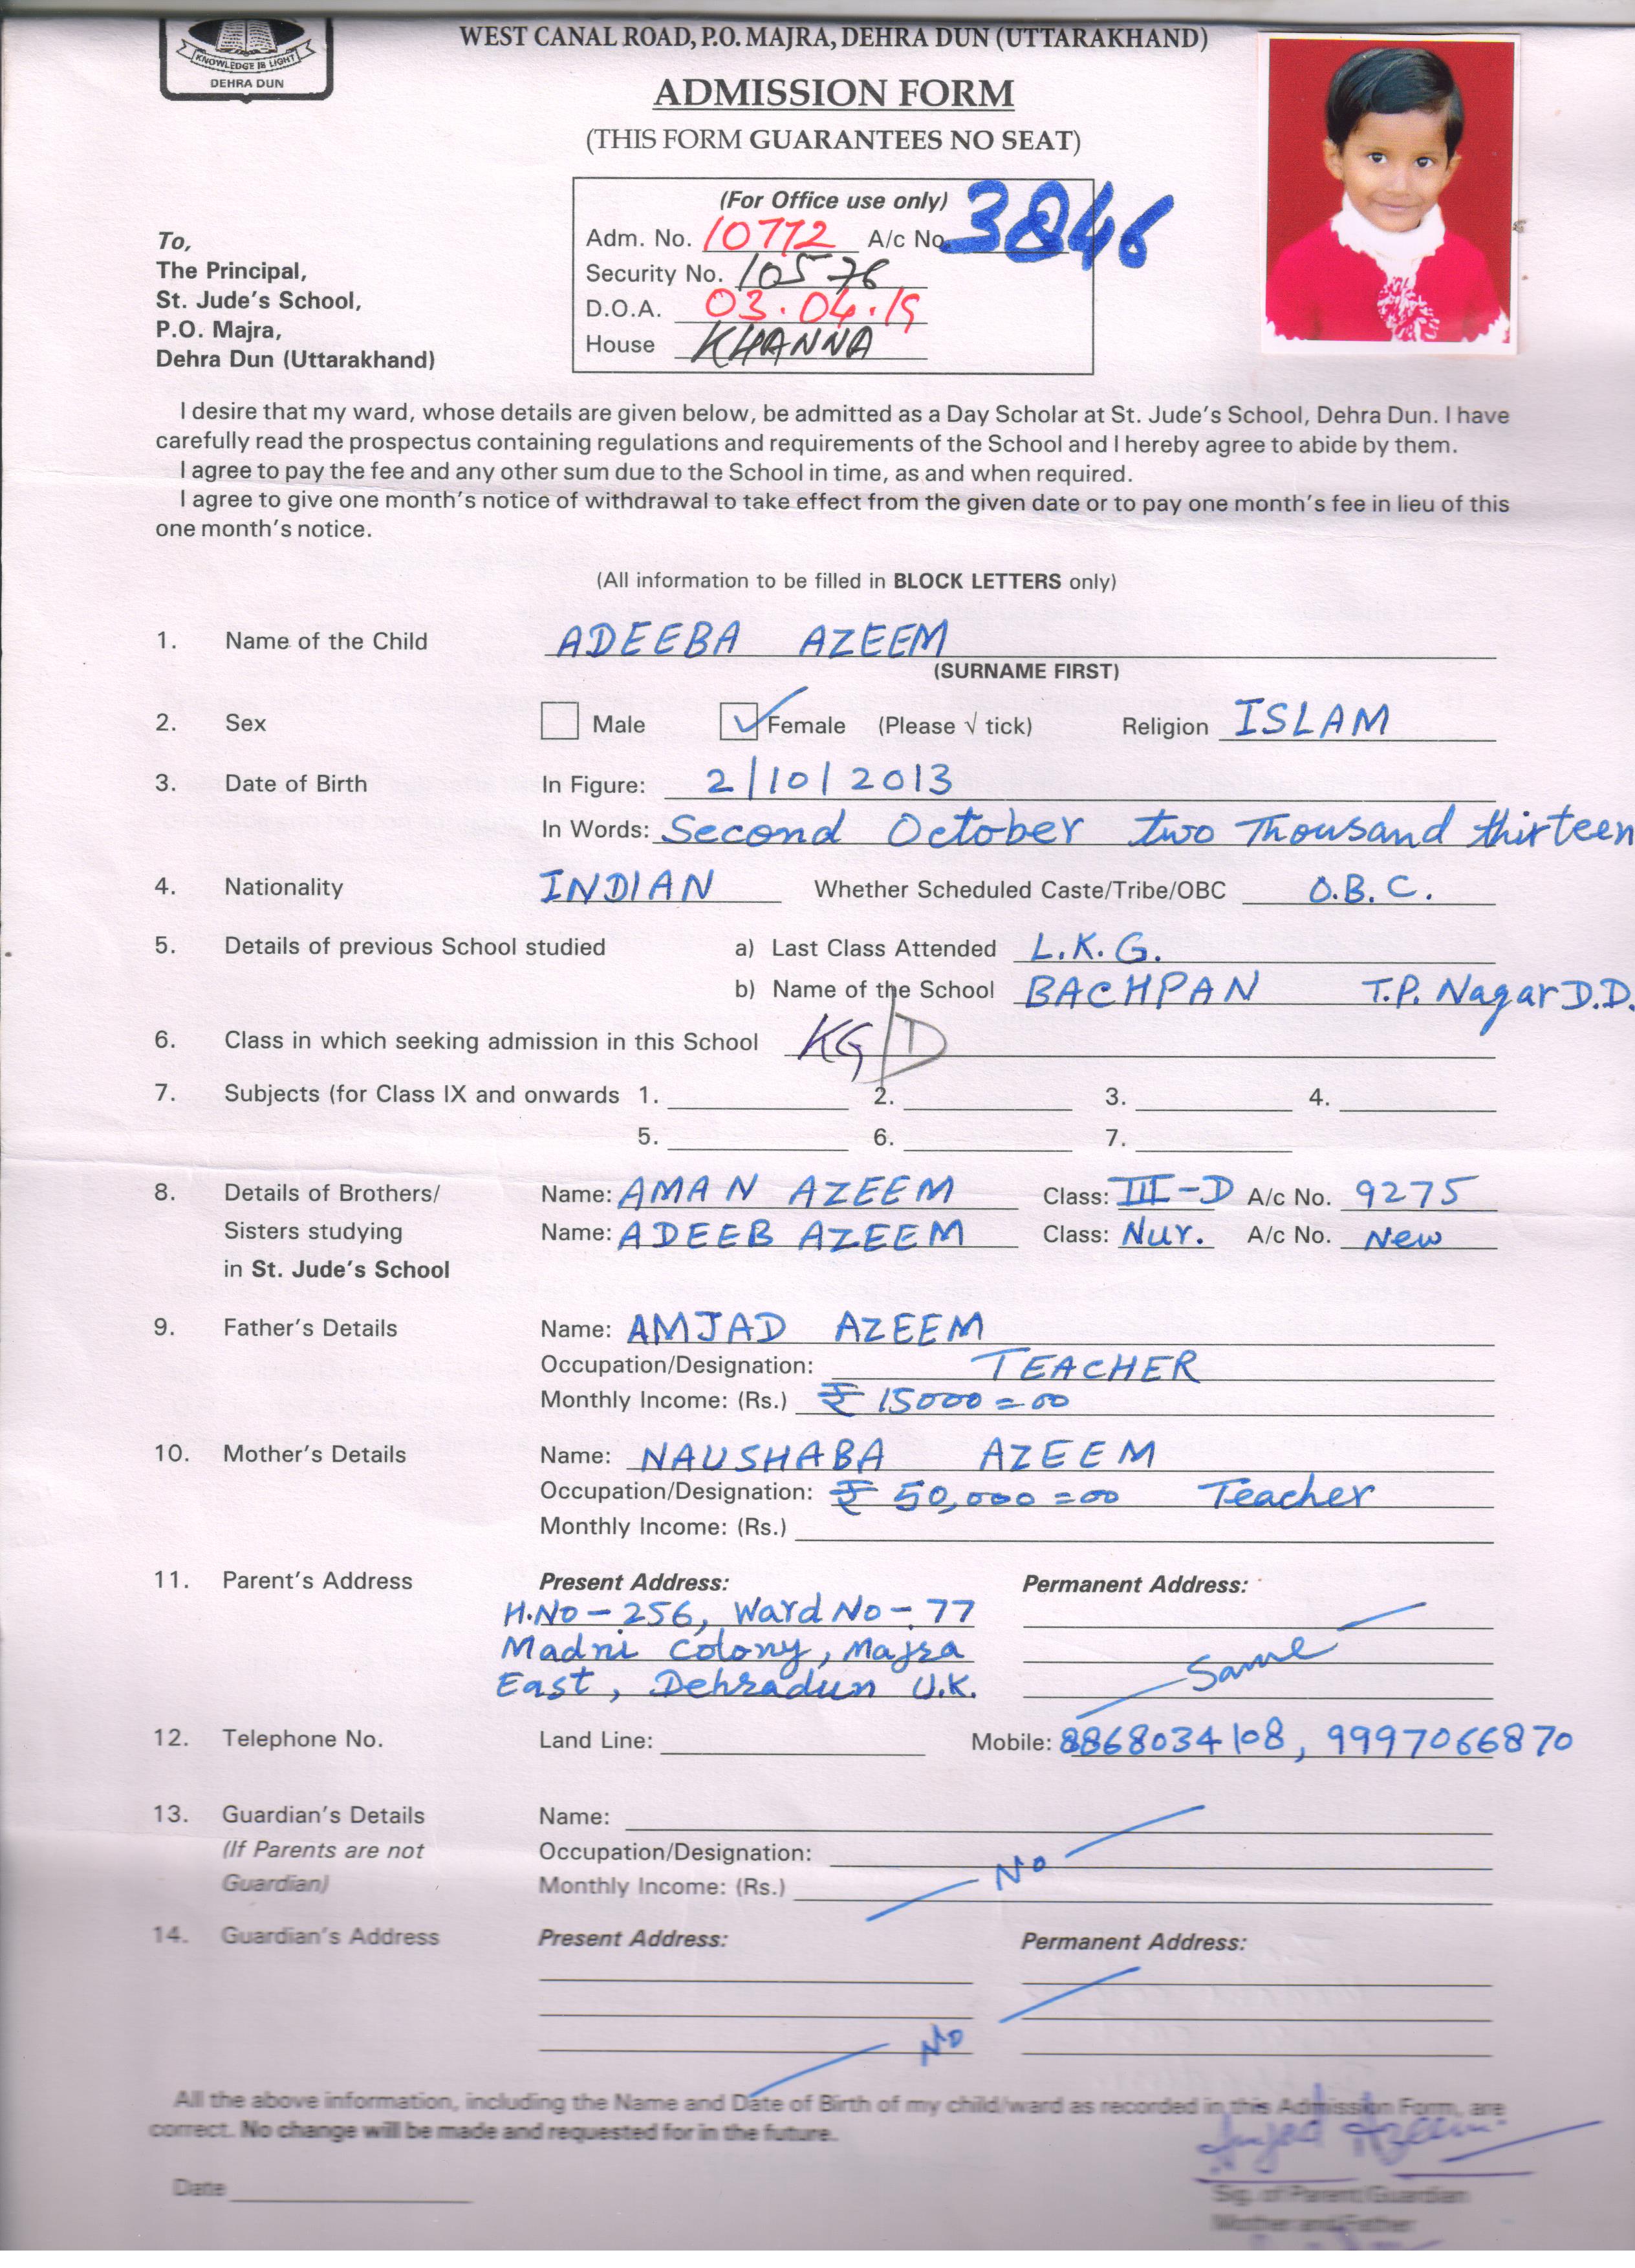 KNOWLEDGE IS LIGHT
DEHRA DUN
WEST CANAL ROAD, P.O. MAJRA, DEHRA DUN (UTTARAKHAND)
ADMISSION FORM
(THIS FORM GUARANTEES NO SEAT)
(For Office use only)
Adm. No. 10772 A/c No. 3846
Security No. 10576
D.O.A. 03.04.19
House KHANNA
To,
The Principal,
St. Jude's School,
P.O. Majra,
Dehra Dun (Uttarakhand)
I desire that my ward, whose details are given below, be admitted as a Day Scholar at St. Jude's School, Dehra Dun. I have
carefully read the prospectus containing regulations and requirements of the School and I hereby agree to abide by them.
I agree to pay the fee and any other sum due to the School in time, as and when required.
I agree to give one month's notice of withdrawal to take effect from the given date or to pay one month's fee in lieu of this
one month's notice.
(All information to be filled in BLOCK LETTERS only)
1. Name of the Child ADEEBA AZEEM
(SURNAME FIRST)
2. Sex Male Female (Please √ tick) Religion ISLAM
3. Date of Birth In Figure: 2/10/2013
In Words: Second October two Thousand thirteen
4. Nationality INDIAN Whether Scheduled Caste/Tribe/OBC O.B.C.
5. Details of previous School studied a) Last Class Attended L.K.G.
b) Name of the School BACHPAN T.P. Nagar D.D.
6. Class in which seeking admission in this School KG/D
7. Subjects (for Class IX and onwards 1. 2. 3. 4.
5. 6. 7.
8. Details of Brothers/ Name: AMAN AZEEM Class: III-D A/c No. 9275
Sisters studying Name: ADEEB AZEEM Class: Nur. A/c No. New
in St. Jude's School
9. Father's Details Name: AMJAD AZEEM
Occupation/Designation: TEACHER
Monthly Income: (Rs.) ₹ 15000=00
10. Mother's Details Name: NAUSHABA AZEEM
Occupation/Designation: ₹ 50,000=00 Teacher
Monthly Income: (Rs.)
11. Parent's Address Present Address: Permanent Address:
H.No - 256, Ward No - 77
Madni Colony, Majra Same
East, Dehradun U.K.
12. Telephone No. Land Line: Mobile: 8868034108, 9997066870
13. Guardian's Details Name:
(If Parents are not Occupation/Designation: No
Guardian) Monthly Income: (Rs.)
14. Guardian's Address Present Address: Permanent Address:
No
All the above information, including the Name and Date of Birth of my child/ward as recorded in this Admission Form, are
correct. No change will be made and requested for in the future.
Amjad Azeem
Date
Sig. of Parent/Guardian
Mother and Father